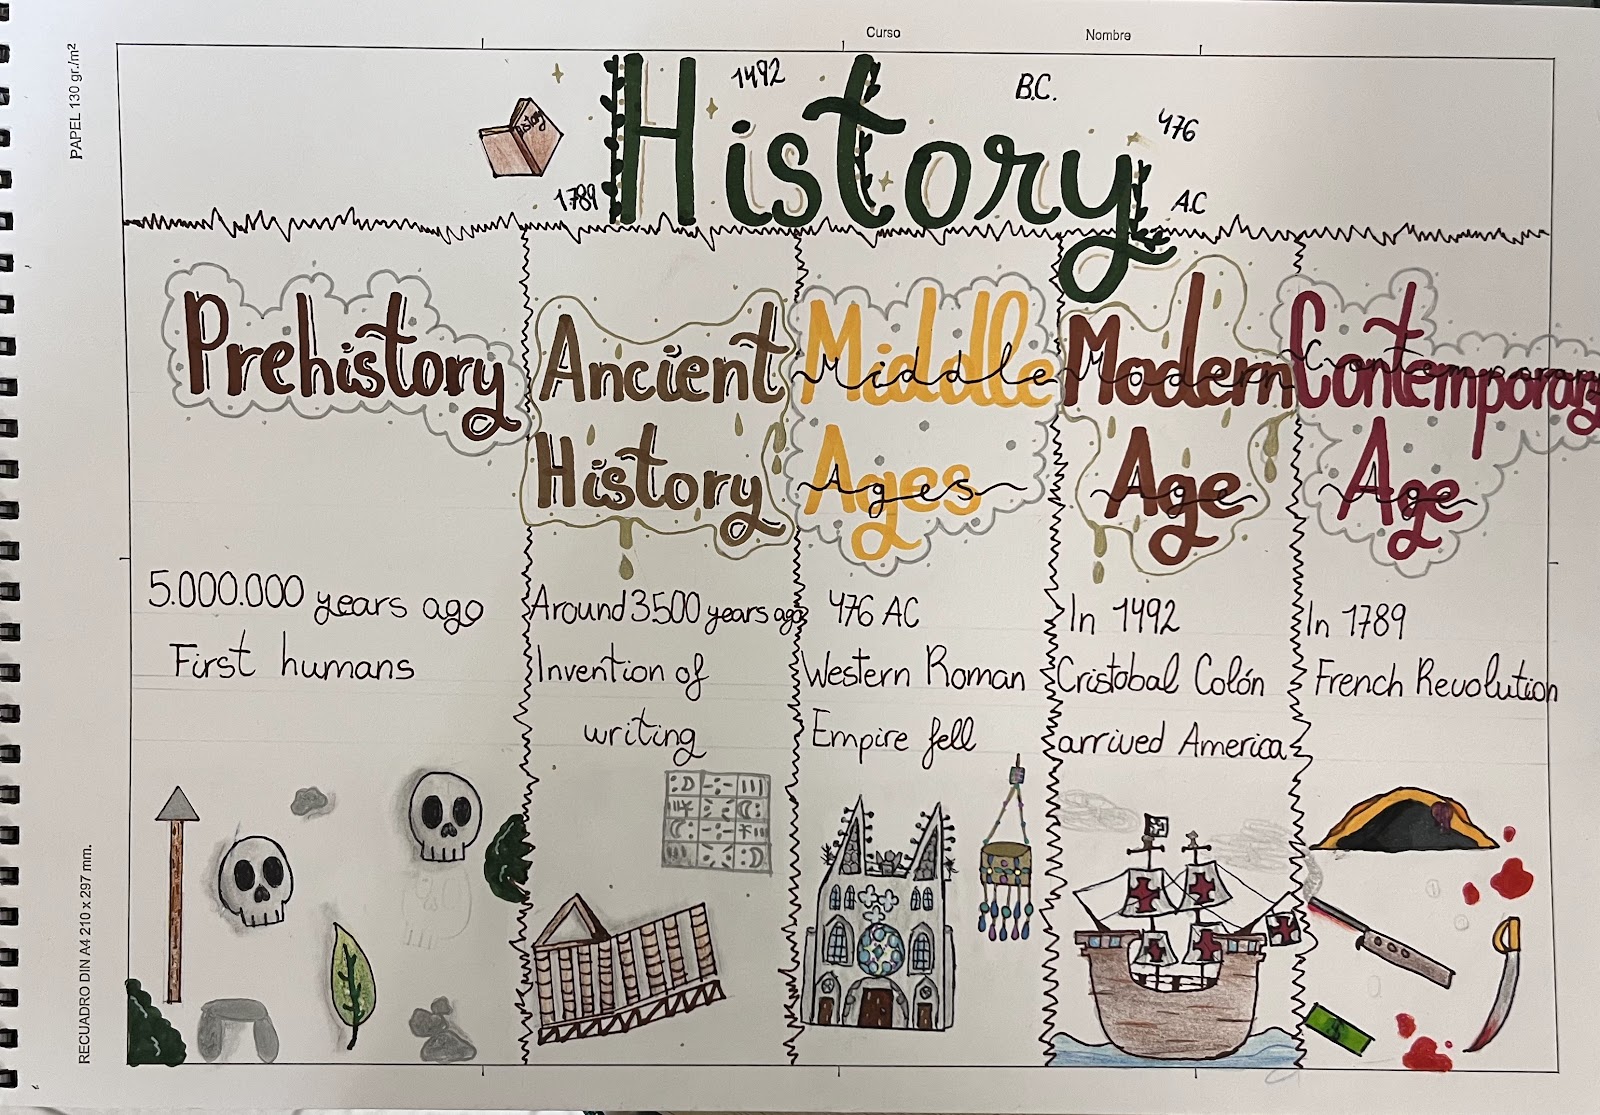 Curso
Nombre
PAPEL 130 gr./m²
RECUADRO DIN A4 210 x 297 mm.
History
1492
B.C.
476
1789
A.C
History
Prehistory
5.000.000 years ago
First humans
Ancient
History
Around 3500 years ago
Invention of
writing
Middle
Middle
Ages
Ages
476 AC
Western Roman
Empire fell
Modern
Modern
Age
Age
In 1492
Cristobal Colón
arrived America
Contemporary
Contemporary
Age
Age
In 1789
French Revolution